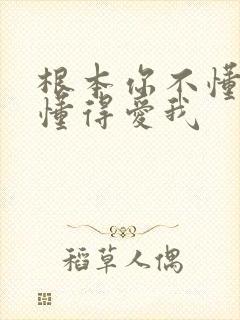 根本你不懂
懂得爱我
稻草人偶